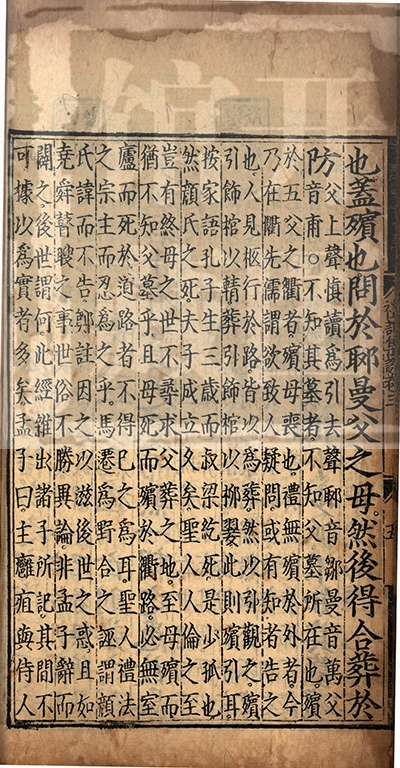 也蓋殯也問於郰曼父之母然後得合葬於
防父上聲愼讀爲引去聲郰音鄒曼音萬父
音甫○不知其墓者不知父墓所在也殯
於五父之衢者欲殯母喪也禮無殯於外者今
乃在衢先儒謂欲致人疑問或有知者告之
也人見柩行於路皆以爲葬然以引觀之殯
引飾棺以輤葬引飾棺以柳翣此則殯引耳
按家語孔子生三歲而叔梁紇死是少孤也
然顏氏之死夫子成立久矣聖人人倫之至
豈有終母之世不尋求父葬之地至母殯而
猶不知父墓乎且母死而殯於衢路必無室
廬而死於道路者不得已之爲耳聖人禮法
之宗主而忍爲之乎馬遷爲野合之誣謂顏
氏諱而不告鄭註因之以滋後世之惑且如
堯舜瞽瞍之事世俗不勝異論非孟子辭而
闢之後世謂何此經雜出諸子所記其間不
可據以爲實者多矣孟子曰主癰疽與侍人